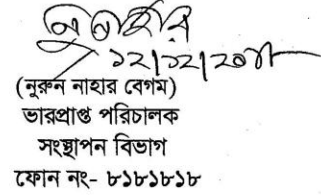 ১২/১২/২০১৮
(নুরুন নাহার বেগম)
ভারপ্রাপ্ত পরিচালক
সংস্থাপন বিভাগ
ফোন নং- ৮১৮১৮১৮